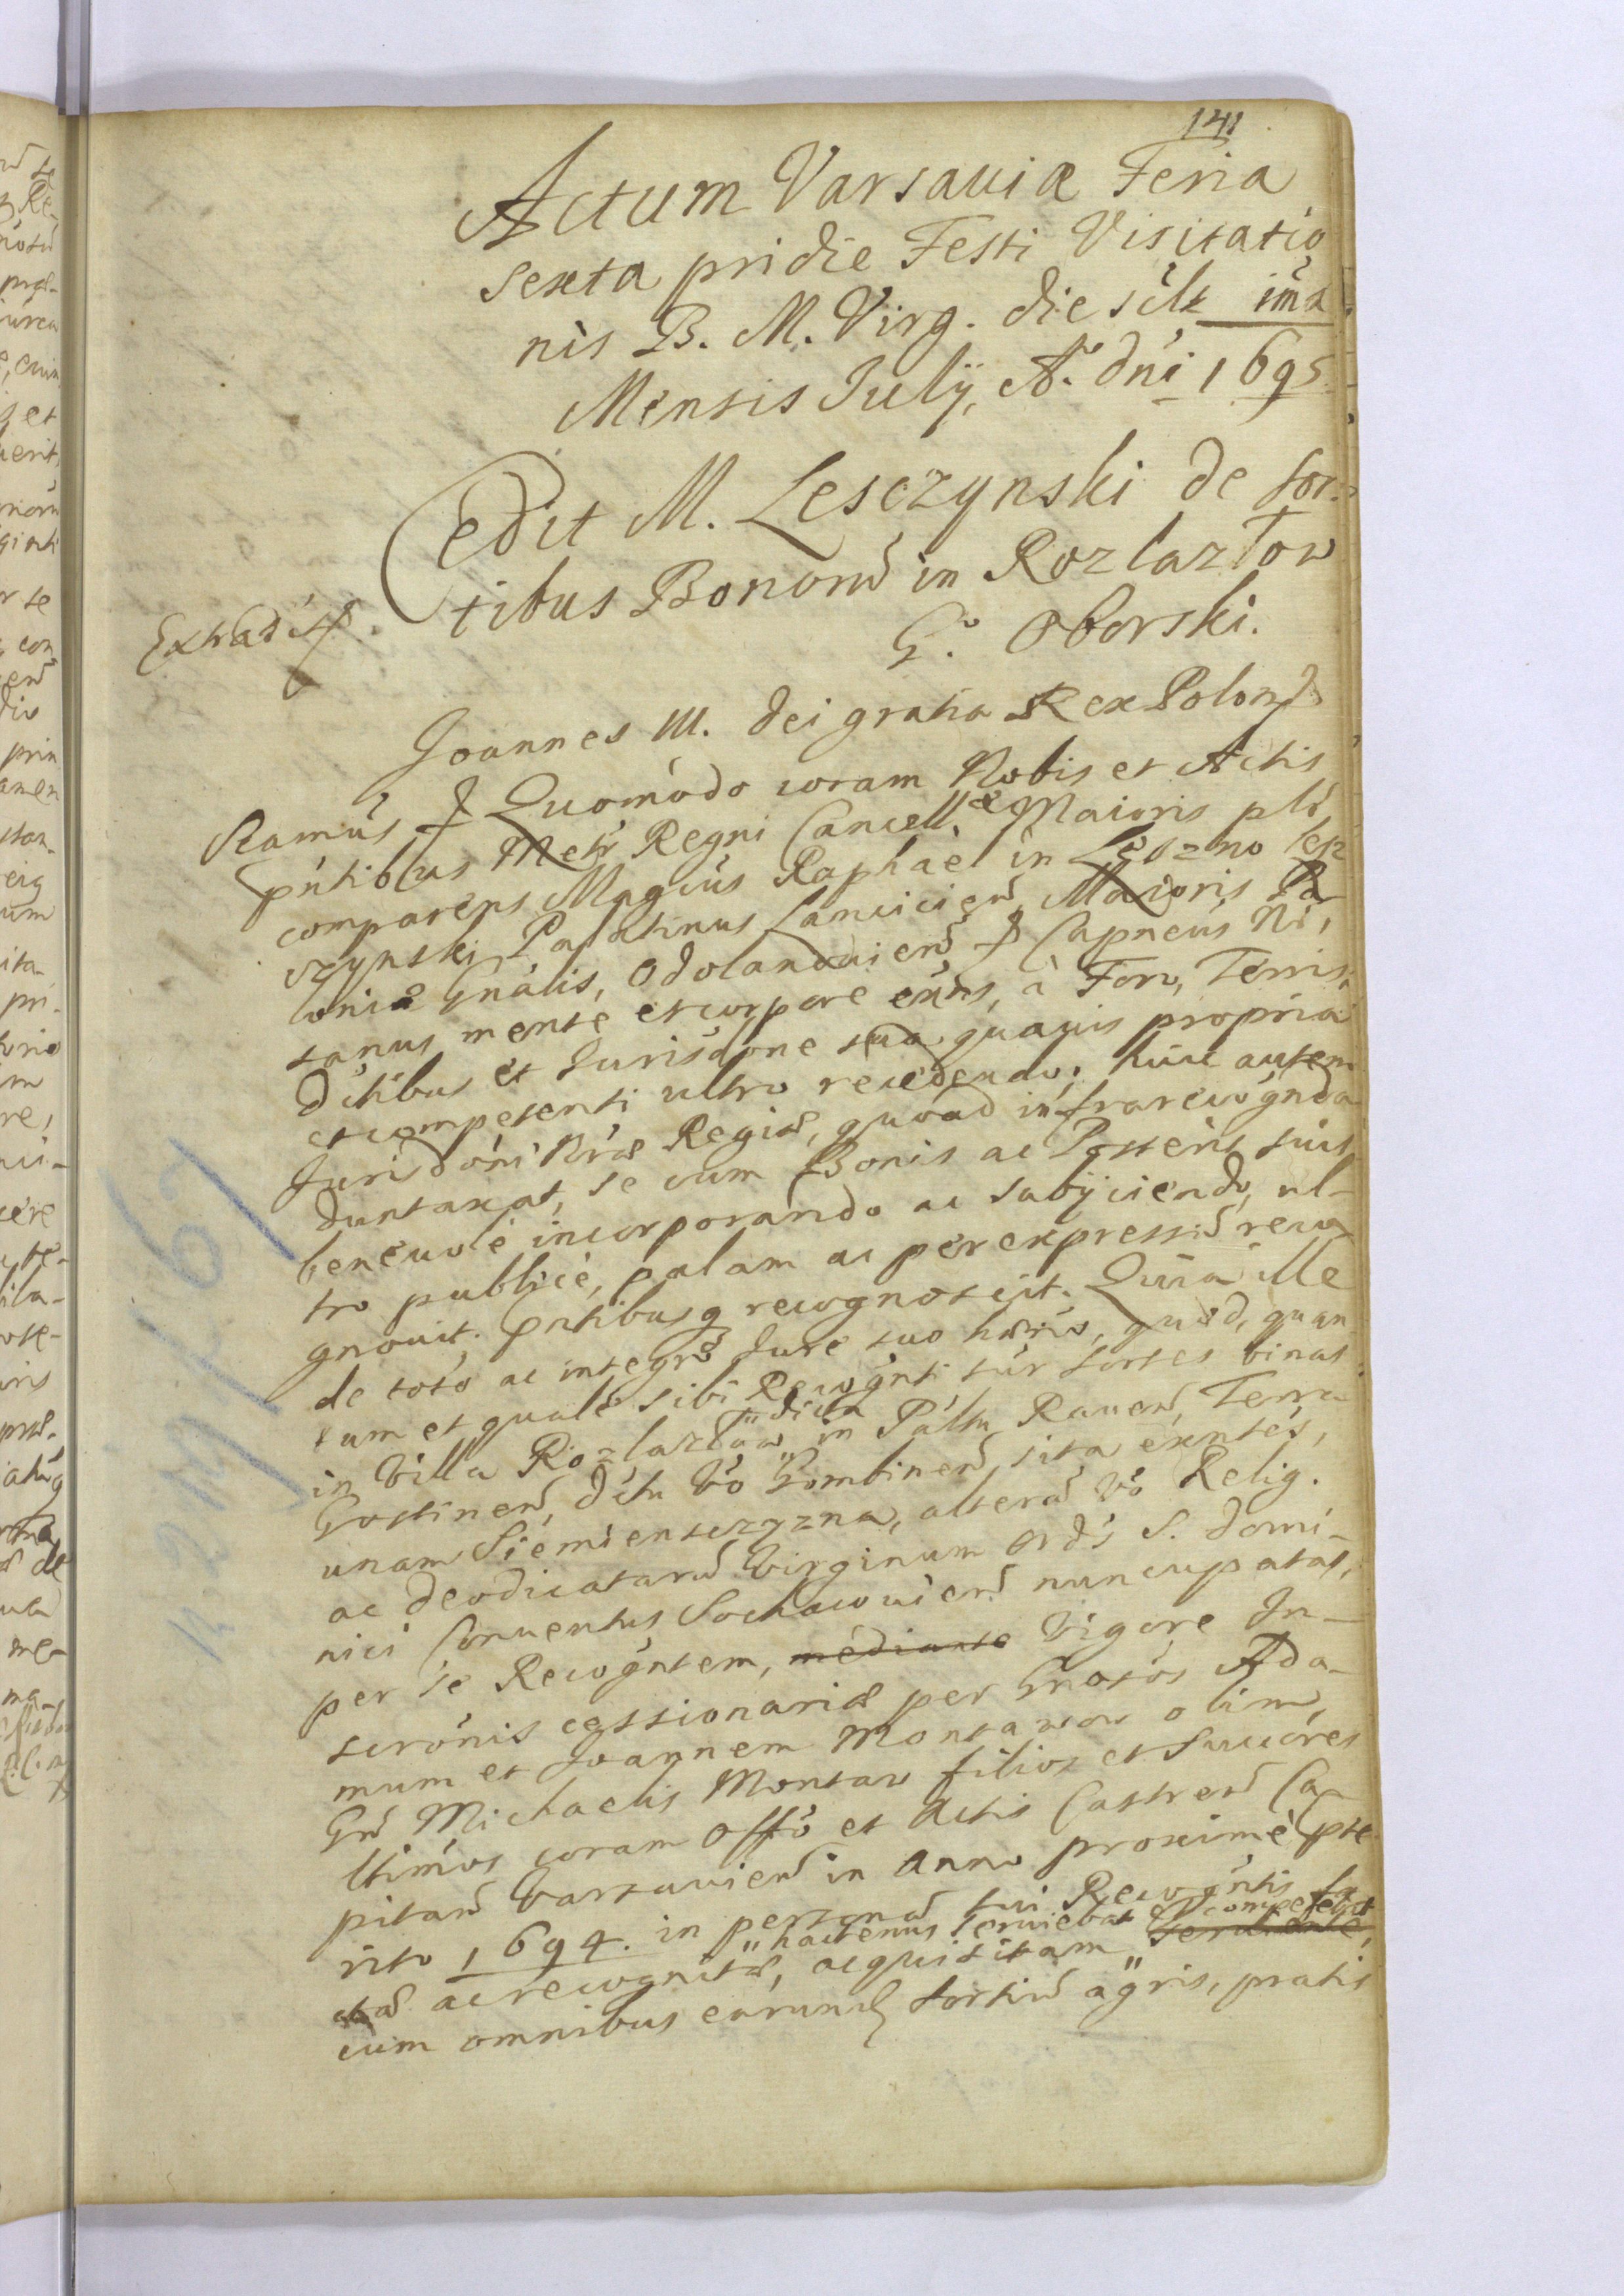 141
Actum Varsaviæ Feria
sexta pridie Festi Visitatio
nis B. M. Virg. die sclt ima
Mensis July, A. dni 1695
Cedit M. Lesczynski de sor-
tibus Bonorū in Rozlazłow
G. Oborski.
Extradit.
Joannes III. Dei gratia Rex Polon.
Quomodo coram Nobis et Actis
pntibus Metr Regni Cancell. Maioris
comparens Magcus Raphael in Leszno Les
czynski Palatinus Lancicien, Maioris Po
loniæ Gnalis, Odolanovien Capneus Nr,
sanus mente et corpore exns, à Foro, Terris
dctibus et Jurisdone sua quavis propria
et competenti ultro recedendo; huic autem
Jurisdoni Nræ Regiæ, quoad infrarecognda
duntaxat, se cum Bonis ac Posteris suis
benevole incorporando ac subijciendo, ul-
tro publicè, palam ac per expressū reco
gnovit, pntibusq recognoscit. Quia ille
de toto ac integro Jure suo hærio, quod, quan
tum et quale sibi Recognti sur sortes binas
in Villa Rozlazłow dicta in Paltu Raven, Terra
Gostinen, dctu Vo Gombinen sita exntes,
unam Siemientczyzna, alterā Vo Relig.
ac deodicatarū Virginum Ords S. Domi-
nici Conventus Sochacovien nuncupatas,
per se Recogntem, mediante Vigore In-
scronis cessionariæ per Gnosos Ada-
mum et Joannem Montaw olim
Gn Michaelis Montaw filios et Succores
ltimos coram Offo et Actis Castren Ca-
pitan Varsavien in Anno proximè pte
rito 1694. in personā sui Recogntis
hactenus serviebat et competebat
ac recognitæ, acquisitam servientе,
cum omnibus earund sortiū agris, pratis